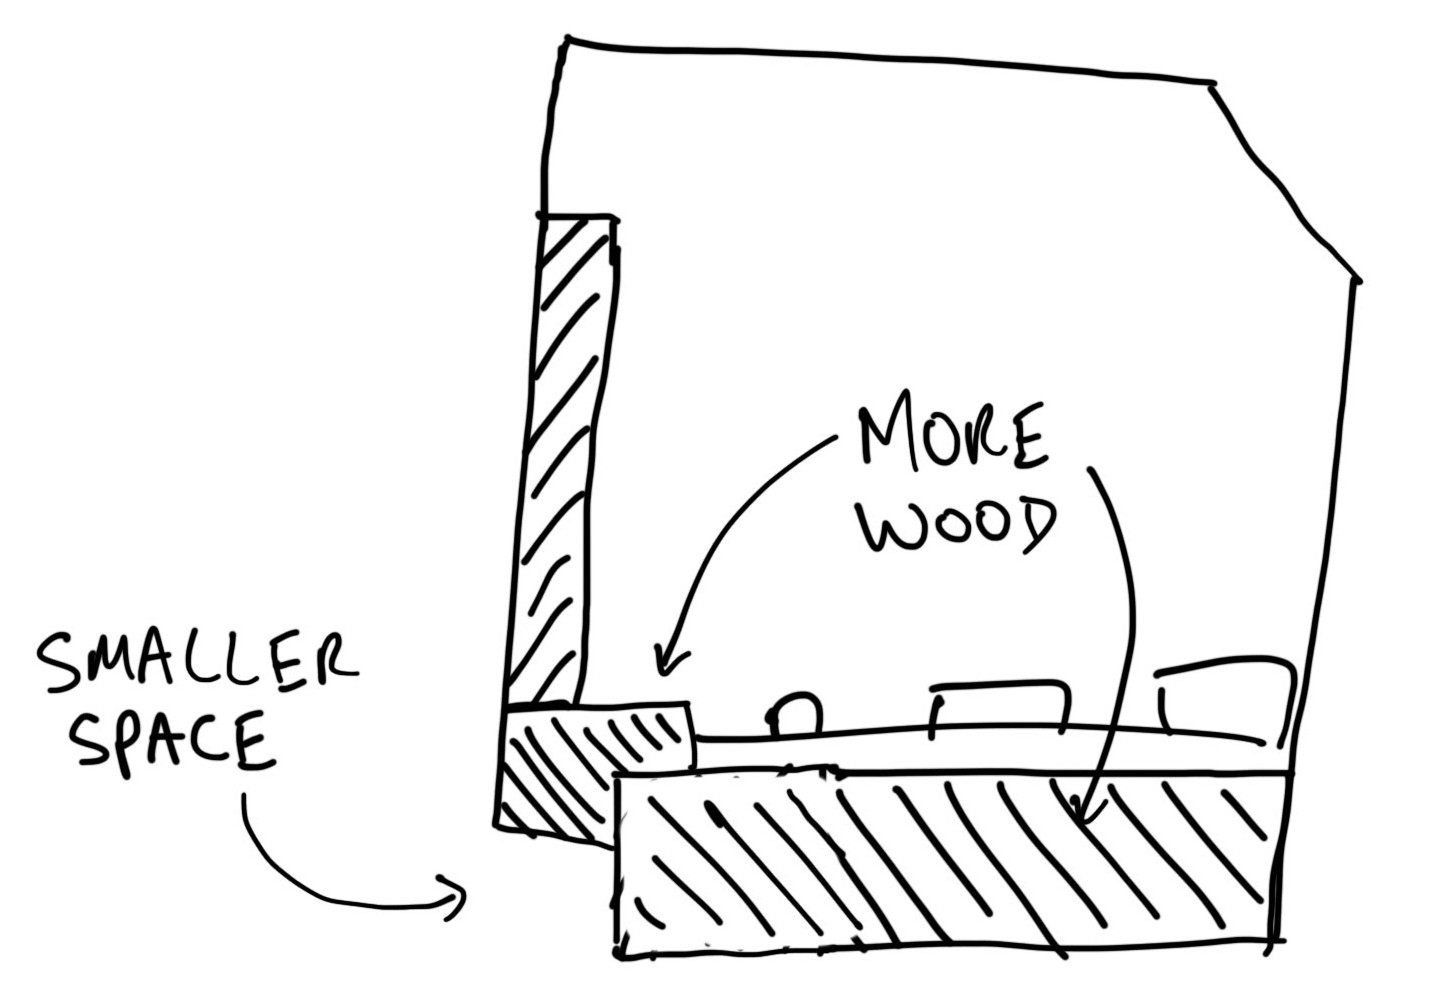 MORE
WOOD
SMALLER
SPACE